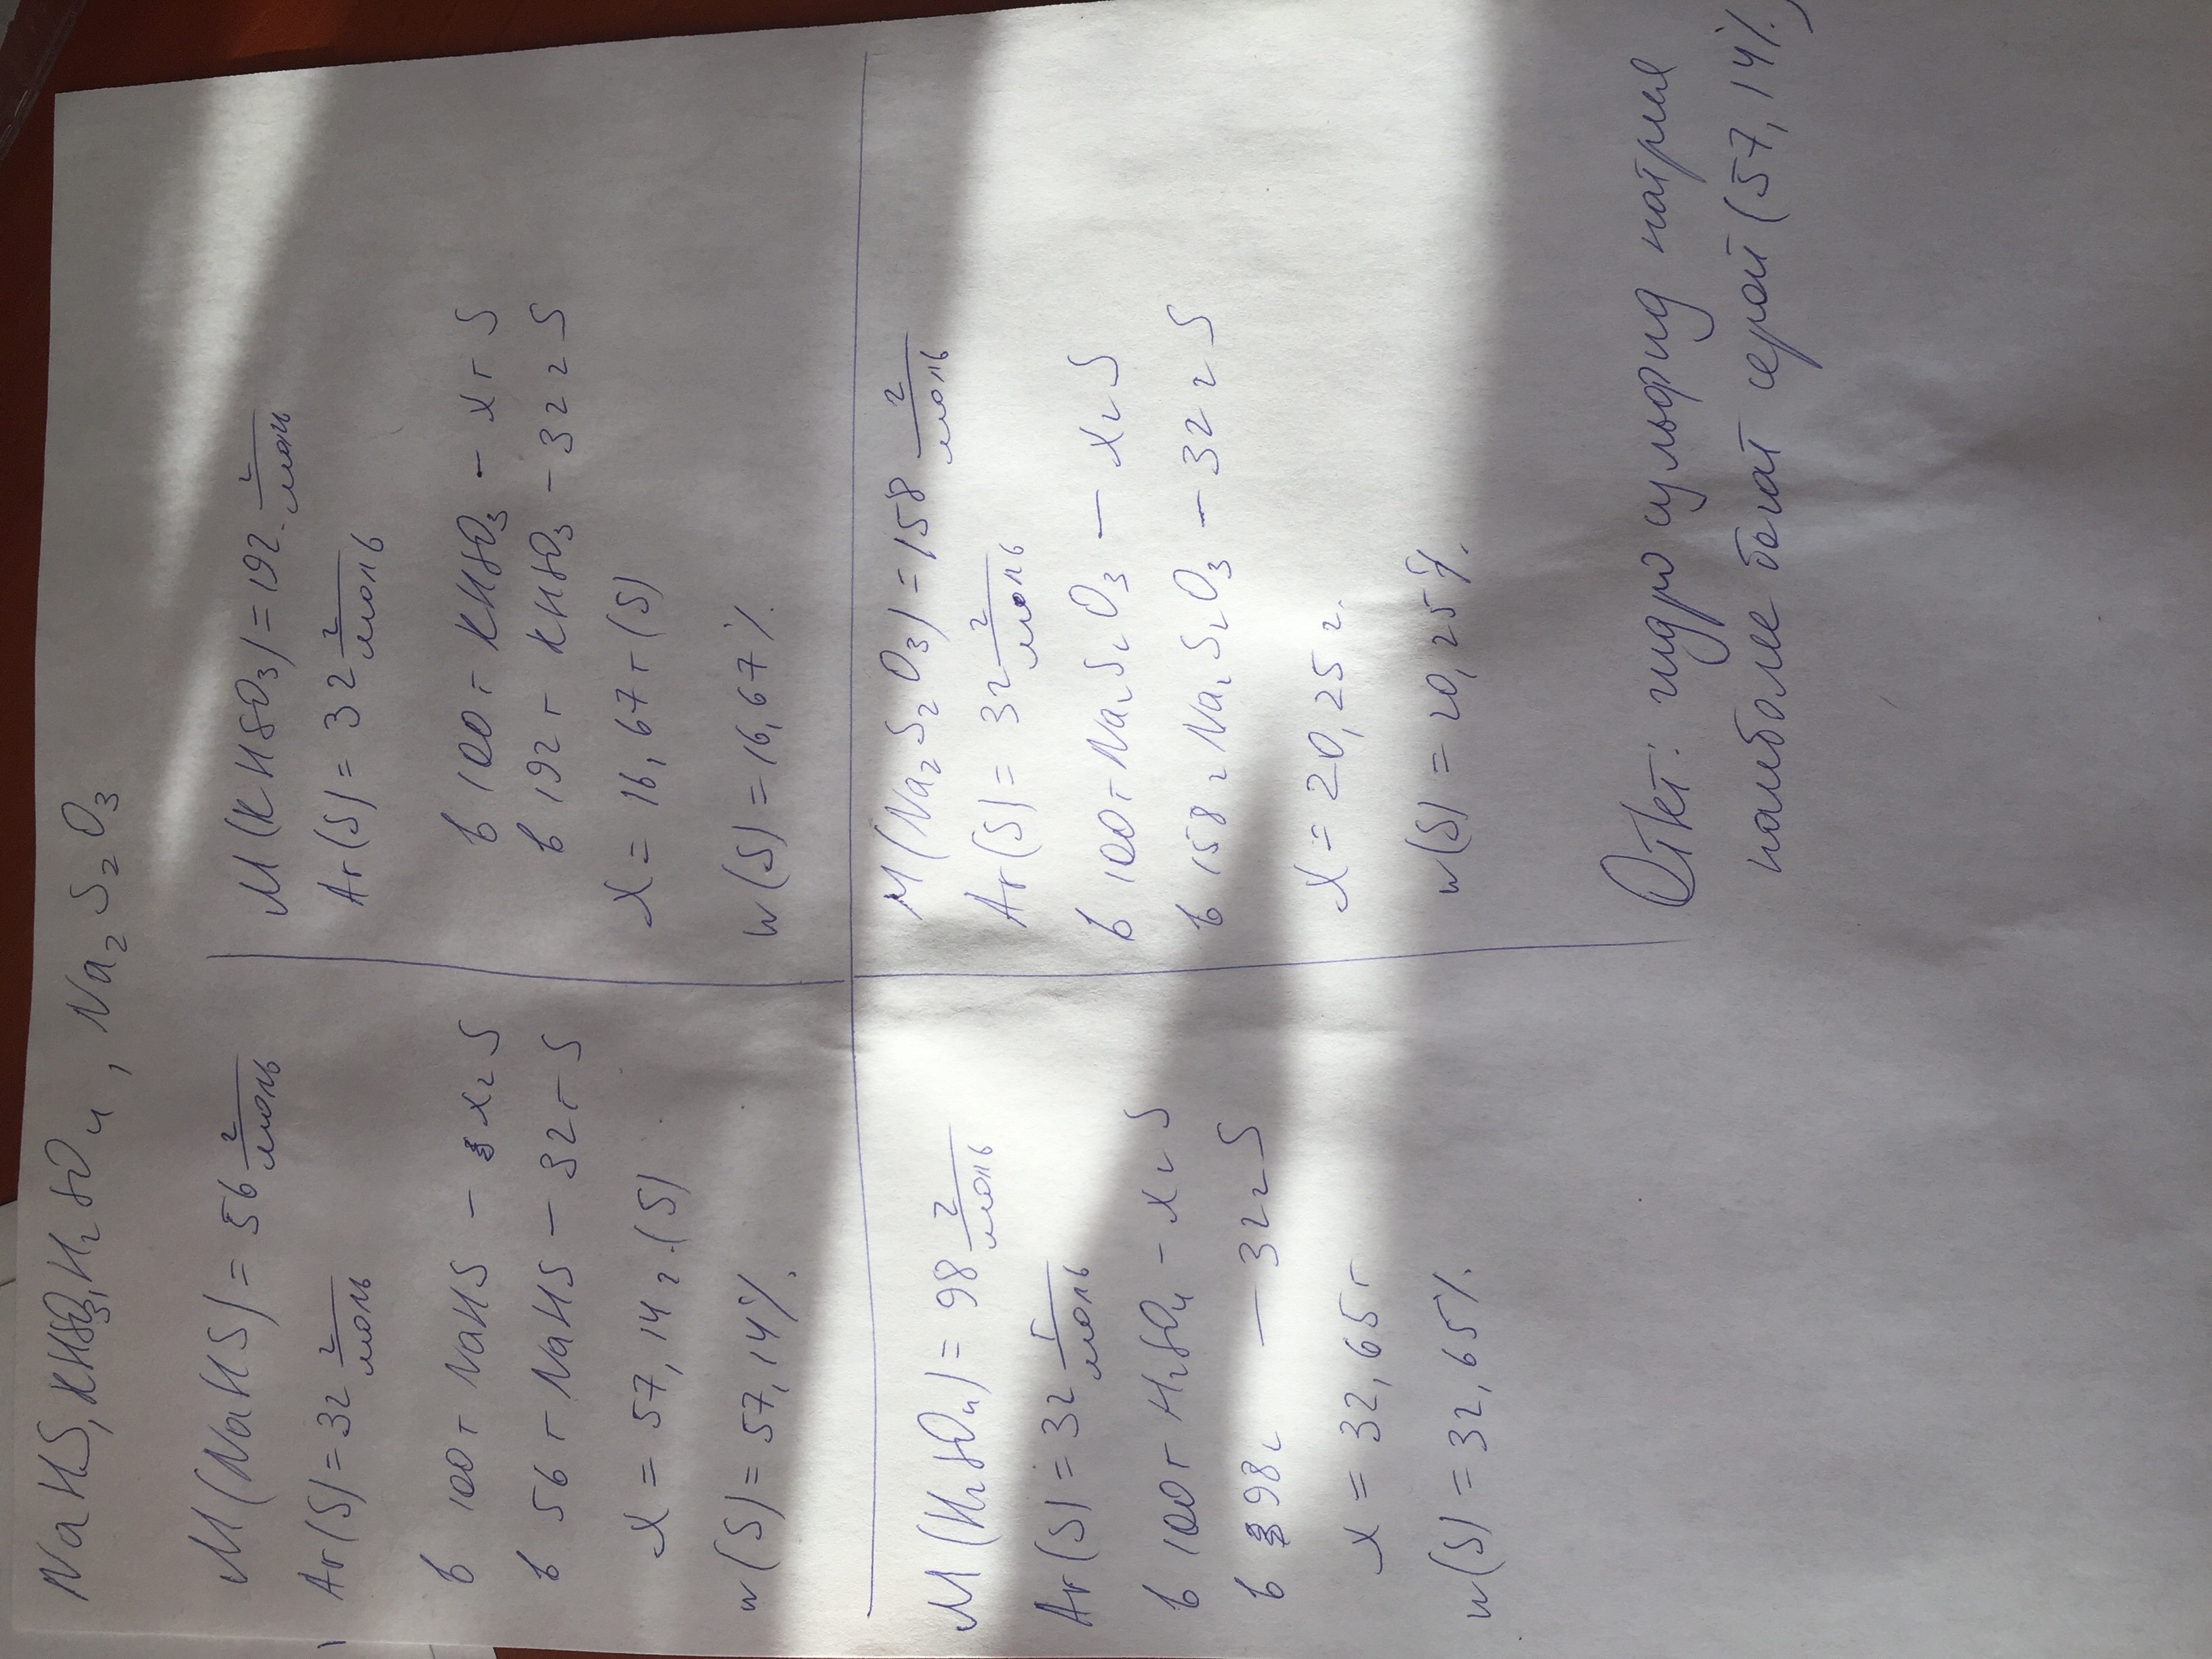 NaHS, KHSO3, H2SO4, Na2S2O3
M(NaHS) = 56 г/моль
Ar(S) = 32 г/моль
в 100 г NaHS – x г S
в 56 г NaHS – 32 г S
x = 57,14 г (S)
w(S) = 57,14%.
M(KHSO3) = 192 г/моль
Ar(S) = 32 г/моль
в 100 г KHSO3 – x г S
в 192 г KHSO3 – 32 г S
x = 16,67 г (S)
w(S) = 16,67%.
M(H2SO4) = 98 г/моль
Ar(S) = 32 г/моль
в 100 г H2SO4 – x г S
в 98 г – 32 г S
x = 32,65 г
w(S) = 32,65%.
M(Na2S2O3) = 158 г/моль
Ar(S) = 32 г/моль
в 100 г Na2S2O3 – x г S
в 158 г Na2S2O3 – 32 г S
x = 20,25 г.
w(S) = 20,25%.
Ответ: гидросульфид натрия
наиболее богат серой (57,14%)